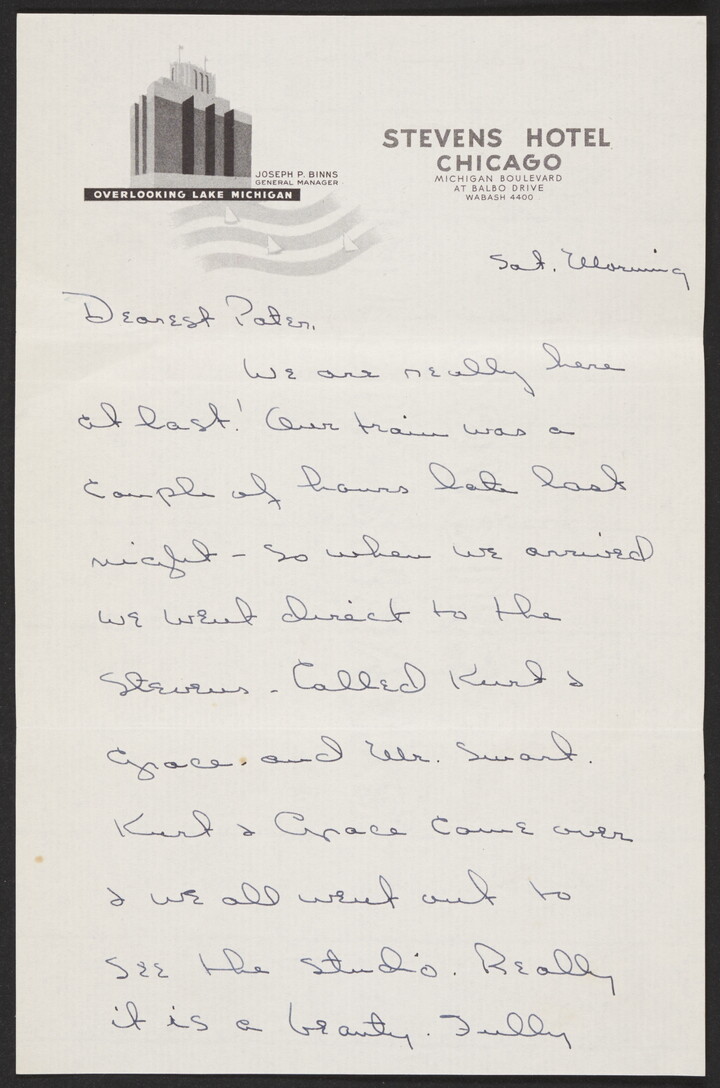 JOSEPH P. BINNS
GENERAL MANAGER
OVERLOOKING LAKE MICHIGAN
STEVENS HOTEL
CHICAGO
MICHIGAN BOULEVARD
AT BALBO DRIVE
WABASH 4400
Sat. Morning
Dearest Pater,
We are really here
at last! Our train was a
couple of hours late last
night - So when we arrived
we went direct to the
Stevens - Called Kurt &
Grace. and Mr. Swart.
Kurt & Grace came over
& we all went out to
see the studio. Really
it is a beauty. Fully